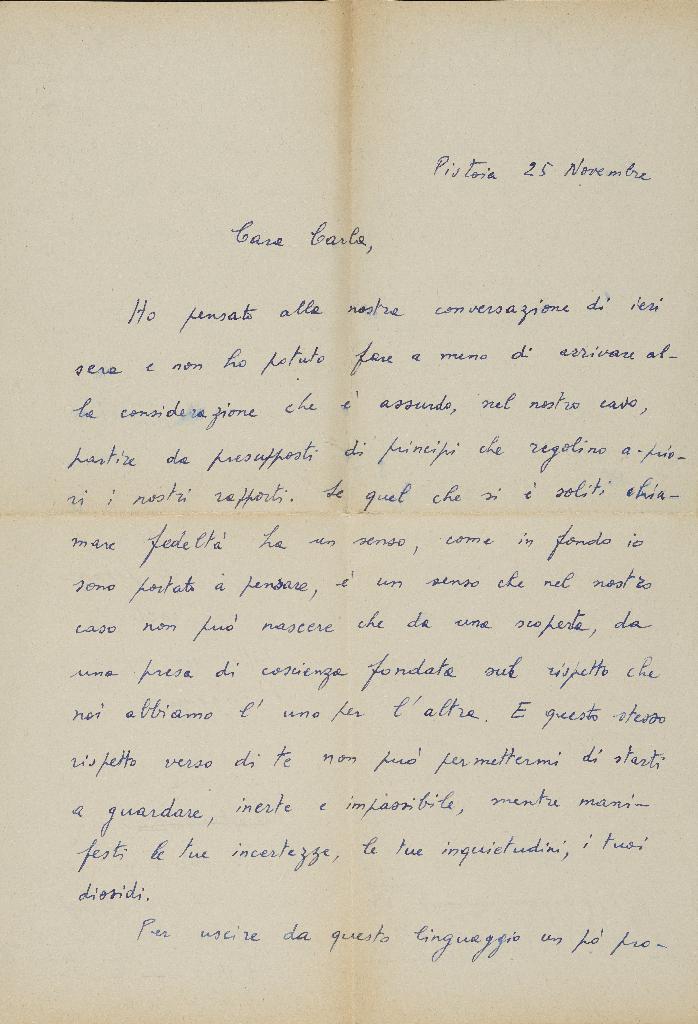 Pistoia 25 Novembre
Cara Carla,
Ho pensato alla nostra conversazione di ieri
sera e non ho potuto fare a meno di arrivare al-
la considerazione che é assurdo, nel nostro caso,
partire da presupposti di principi che regolino a-prio-
ri i nostri rapporti. Se quel che si é soliti chia-
mare fedeltà ha un senso, come in fondo io
sono portato a pensare, é un senso che nel nostro
caso non può nascere che da una scoperta, da
una presa di coscienza fondata sul rispetto che
noi abbiamo l'uno per l'altra. E questo stesso
rispetto verso di te non può permettermi di starti
a guardare, inerte e impassibile, mentre mani-
festi le tue incertezze, le tue inquietudini, i tuoi
dissidi.
Per uscire da questo linguaggio un pò pro-